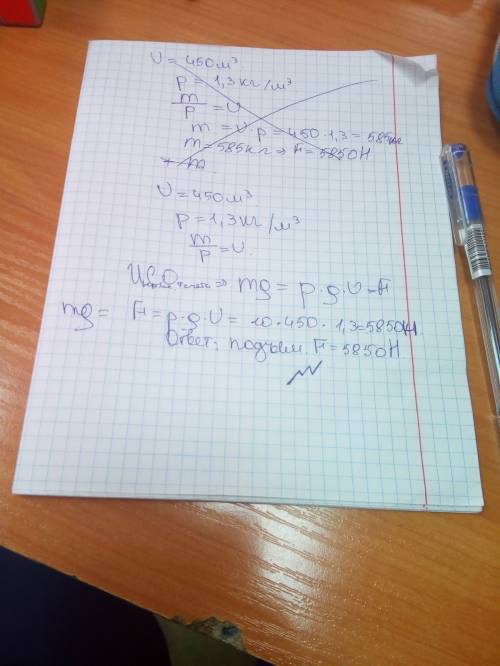 U = 450м³
p = 1,3кг/м³
m/p = U
m = U·p = 450·1,3 = 585кг
m = 585кг ⇒ F = 5850Н
m
U = 450м³
p = 1,3кг/м³
m/p = U.
⇒ mg = p·g·U = F
mg = F = p·g·U = 10·450·1,3 = 5850Н.
Ответ: подъём. F = 5850Н